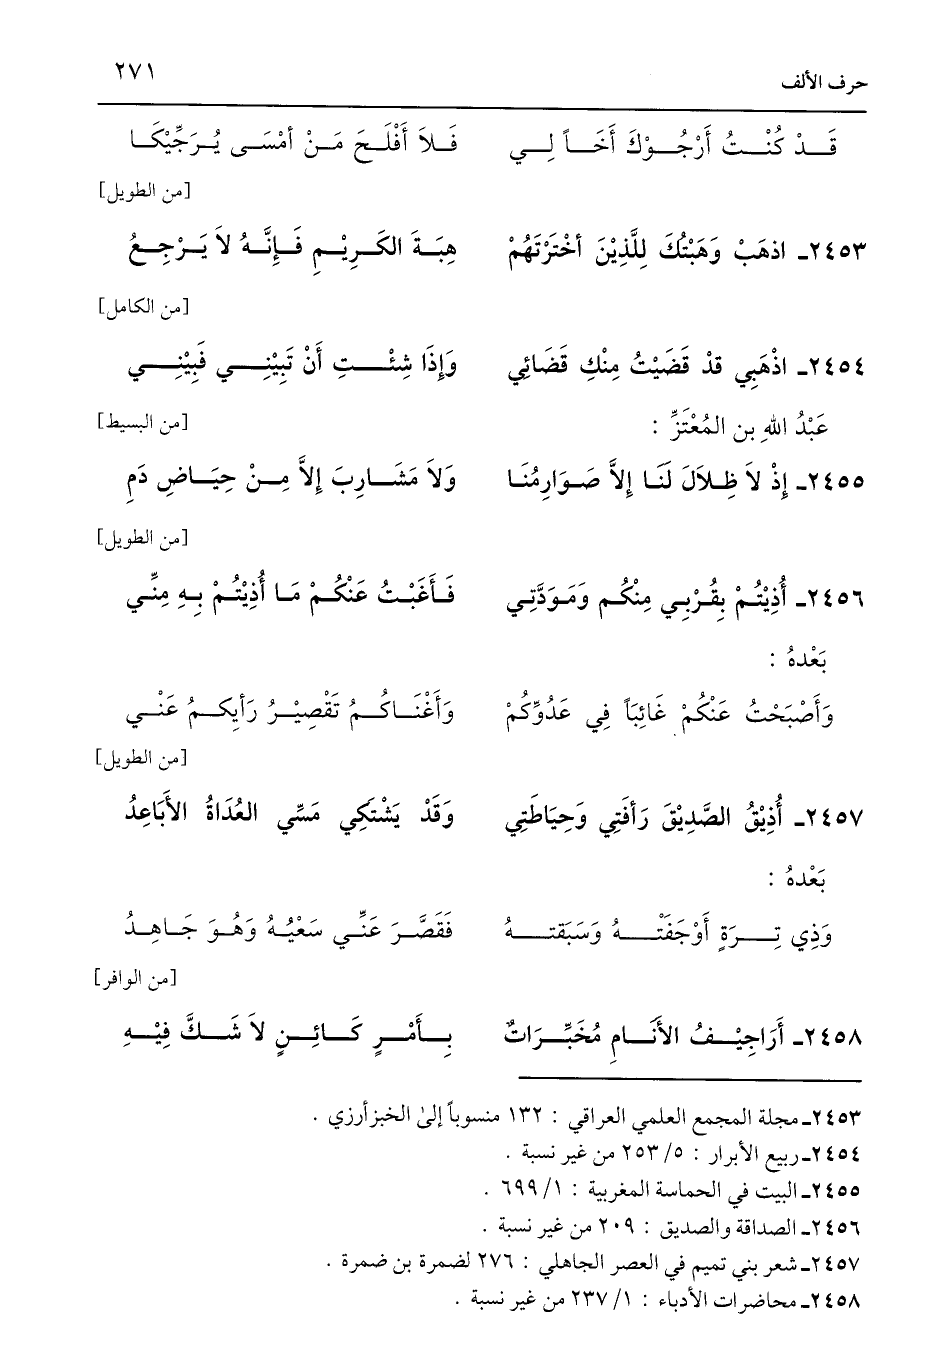 حرف الألف ٢٧١
قَدْ كُنْتُ أَرْجُوْكَ أَخَاً لِي فَلاَ أَفْلَحَ مَنْ أَمْسَى يُرَجِّيْكَا
[من الطويل]
٢٤٥٣ـ اذهَبْ وَهَبْتُكَ لِلَّذِيْنَ أخْتَرْتَهُمْ هِبَةَ الكَرِيْمِ فَإِنَّهُ لاَ يَرْجِعُ
[من الكامل]
٢٤٥٤ـ اذْهَبِي قدْ قَضَيْتُ مِنْكِ قَضَائِي وَإِذَا شِئْتِ أَنْ تَبِيْنِي فَبِيْنِي
عَبْدُ اللهِ بن المُعْتَزِّ : [من البسيط]
٢٤٥٥ـ إِذْ لاَ ظِلاَلَ لَنَا إِلاَّ صَوَارِمُنَا وَلاَ مَشَارِبَ إِلاَّ مِنْ حِيَاضِ دَمِ
[من الطويل]
٢٤٥٦ـ أُذِيْتُمْ بِقُرْبِي مِنْكُم وَمَوَدَّتِي فَأَغَبْتُ عَنْكُمْ مَا أُذِيْتُمْ بِهِ مِنِّي
بَعْدهُ :
وَأَصْبَحْتُ عَنْكُمْ غَائِبَاً فِي عَدُوِّكُمْ وَأَغْنَاكُمُ تَقْصِيْرُ رَأيكمُ عَنْي
[من الطويل]
٢٤٥٧ـ أُذِيْقُ الصَّدِيْقَ رَأفَتِي وَحِيَاطَتِي وَقَدْ يَشْتَكِي مَسِّي العُدَاةُ الأبَاعِدُ
بَعْدهُ :
وَذِي تِرَةٍ أَوْجَفْتهُ وَسَبَقتهُ فَقَصَّرَ عَنِّي سَعْيُهُ وَهُوَ جَاهِدُ
[من الوافر]
٢٤٥٨ـ أَرَاجِيْفُ الأَنَامِ مُخَبِّرَاتٌ بِأَمْرٍ كَائِنٍ لاَ شَكَّ فِيْهِ
٢٤٥٣ـ مجلة المجمع العلمي العراقي : ١٣٢ منسوباً إلى الخبزأرزي .
٢٤٥٤ـ ربيع الأبرار : ٥/ ٢٥٣ من غير نسبة .
٢٤٥٥ـ البيت في الحماسة المغربية : ١/ ٦٩٩ .
٢٤٥٦ـ الصداقة والصديق : ٢٠٩ من غير نسبة .
٢٤٥٧ـ شعر بني تميم في العصر الجاهلي : ٢٧٦ لضمرة بن ضمرة .
٢٤٥٨ـ محاضرات الأدباء : ١/ ٢٣٧ من غير نسبة .